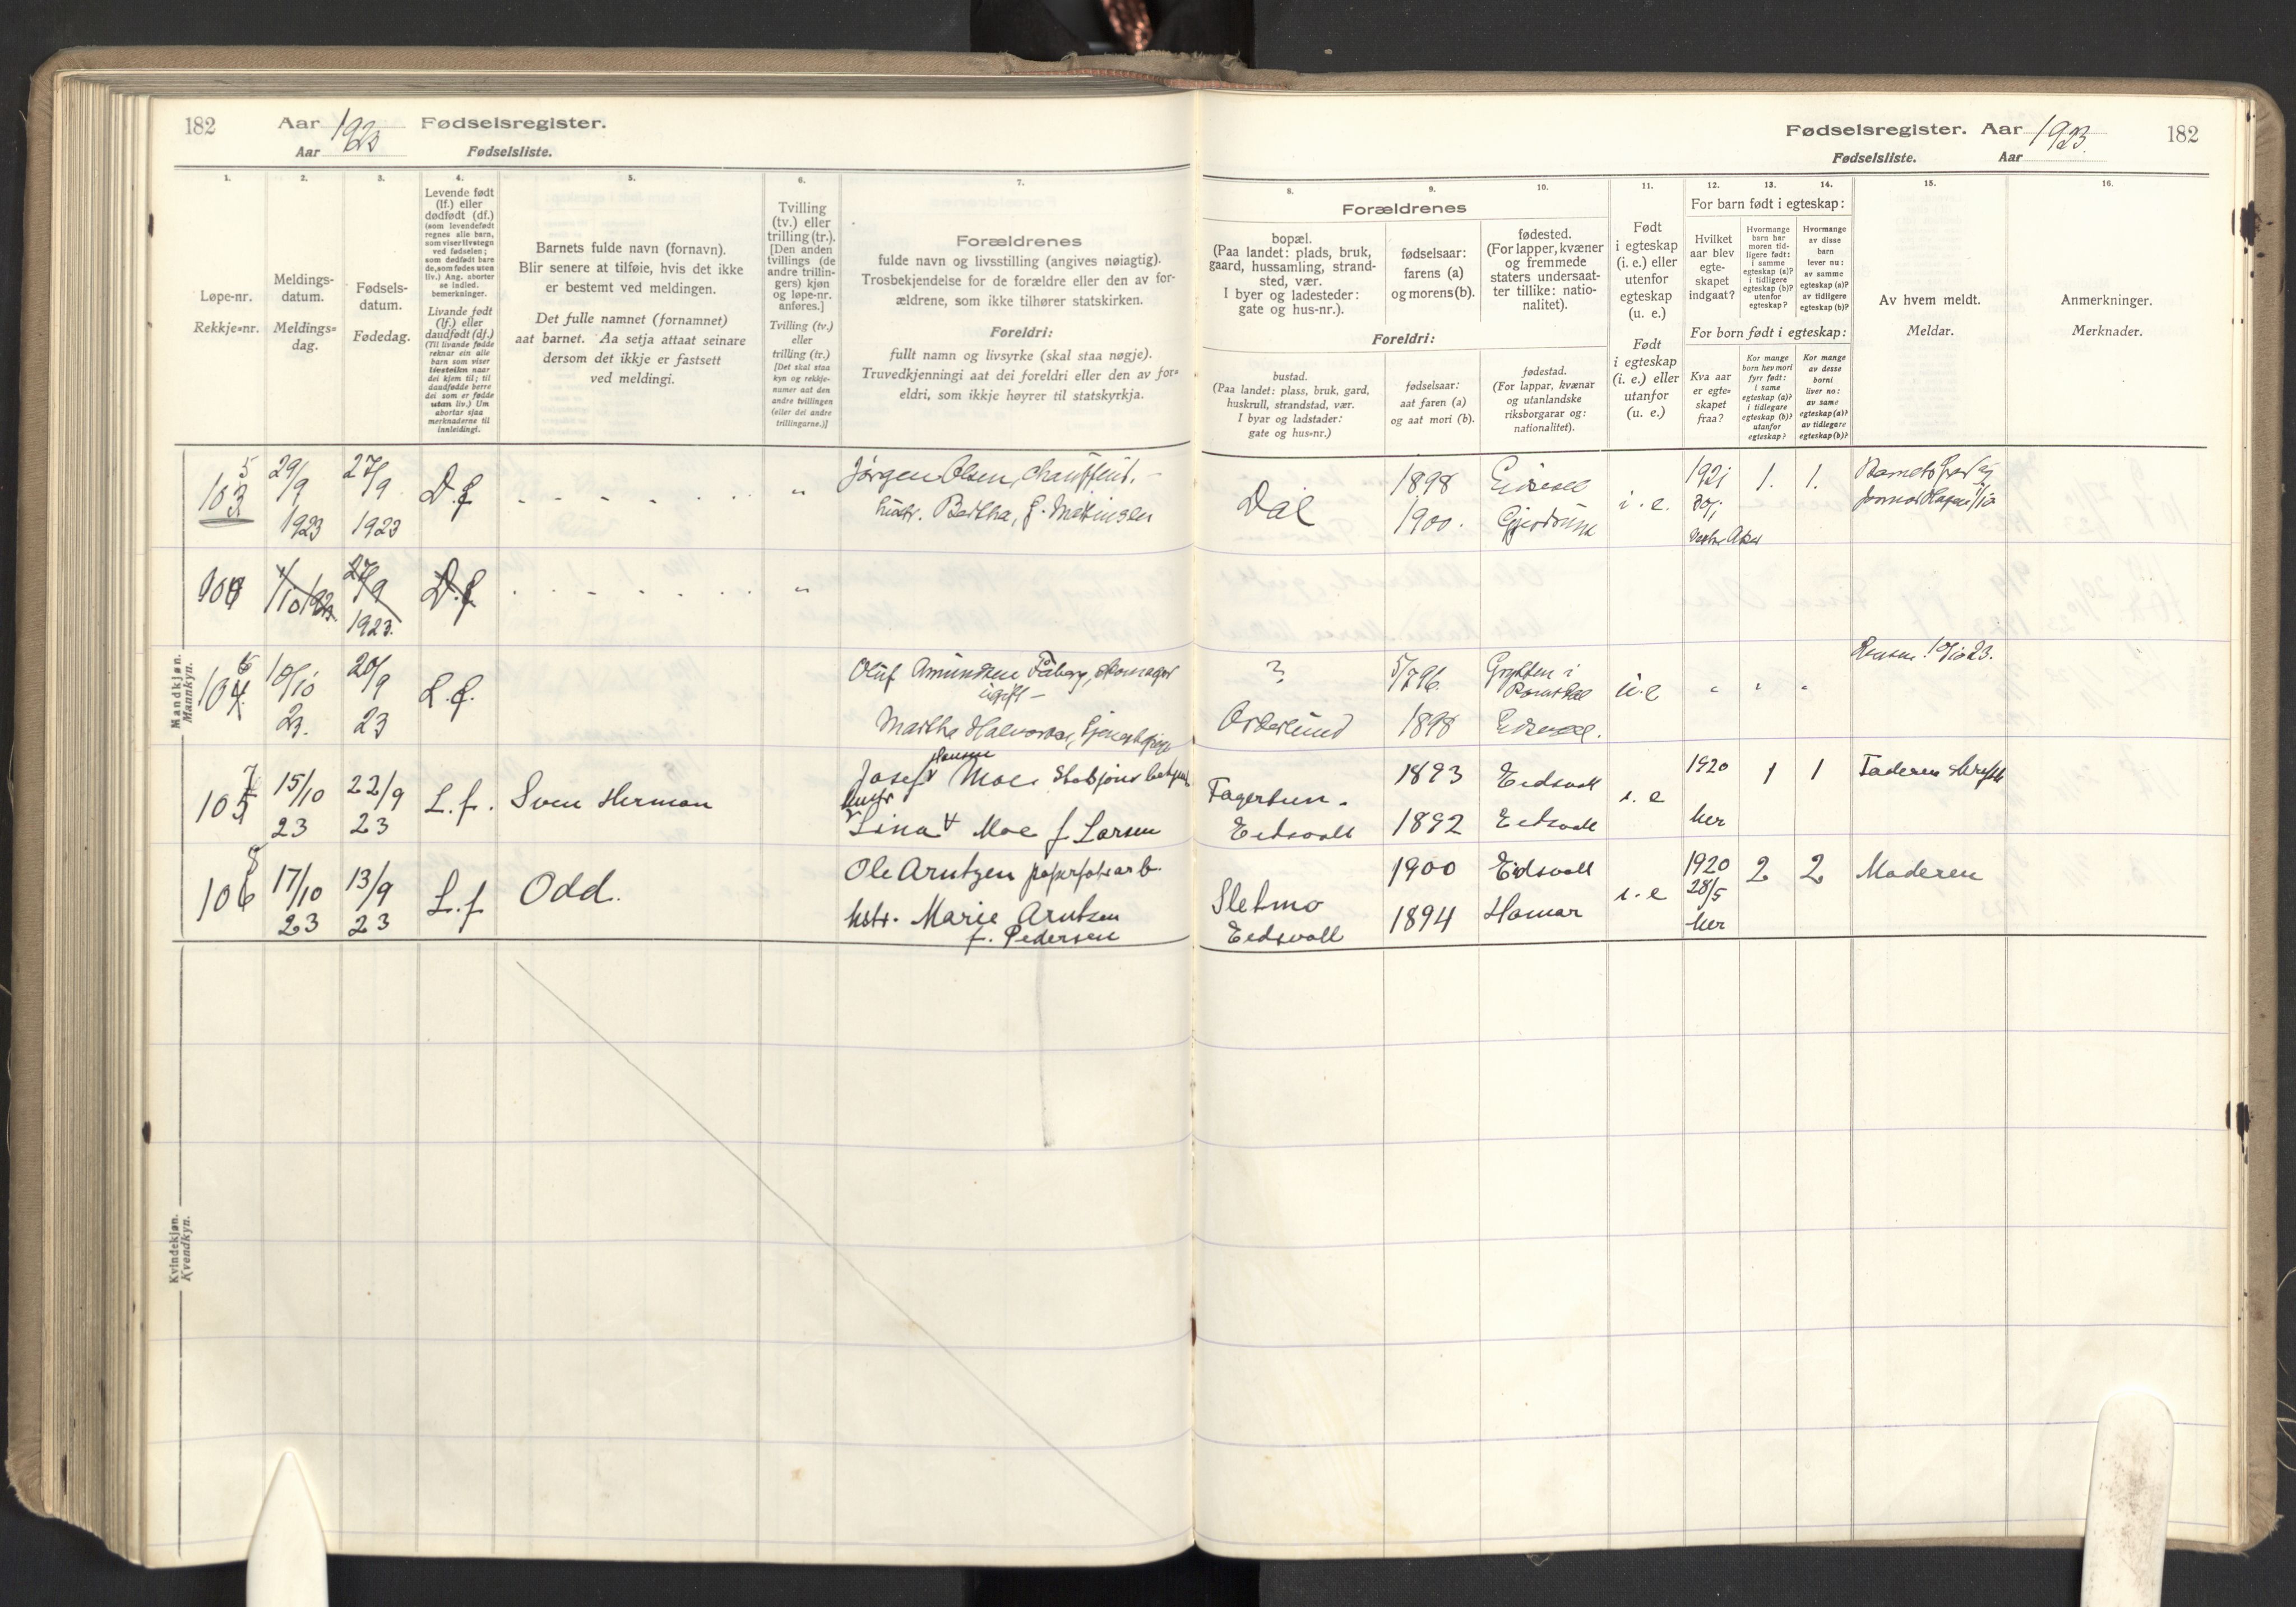 182 Aar 1923 Fødselsregister.
Aar Fødselsliste.
Fødselsregister. Aar 1923. 182
Fødselsliste. Aar
1. 2. 3. 4. 5. 6. 7.
8. 9. 10. 11. 12. 13. 14. 15. 16.
Løpe-nr.
Rekkje=nr.
Meldings-
datum.
Meldings=
dag.
Fødsels-
datum.
Fødedag.
Levende født
(lf.) eller
dødfødt (df.)
(som levendefødt
regnes alle barn,
som viser livstegn
ved fødselen;
som dødfødt bare
de, som fødes uten
liv.) Ang. aborter
se indled.
bemerkninger.
Livande født
(lf.) eller
daudfødt (df.)
(Til livande fødde
reknar ein alle
barn som viser
livsteikn naar
dei kjem til; til
daudfødde berre
dei som er fødde
utan liv.) Um
abortar sjaa
merknaderne til
innleidingi.
Barnets fulde navn (fornavn).
Blir senere at tilføie, hvis det ikke
er bestemt ved meldingen.
Det fulle namnet (fornamnet)
aat barnet. Aa setja attaat seinare
dersom det ikkje er fastsett
ved meldingi.
Tvilling
(tv.) eller
trilling (tr.).
[Den anden
tvillings (de
andre trillin-
gers) kjøn
og løpe-nr.
anføres.]
Tvilling (tv.)
eller
trilling (tr.)
[Det skal staa
kyn og rekkje-
numer aat den
andre tvillingen
(eller dei andre
trillingarne.)]
Forældrenes
fulde navn og livsstilling (angives nøiagtig).
Trosbekjendelse for de forældre eller den av for-
ældrene, som ikke tilhører statskirken.
Foreldri:
fullt namn og livsyrke (skal staa nøgje).
Truvedkjenningi aat dei foreldri eller den av for=
eldri, som ikkje høyrer til statskyrkja.
Forældrenes
bopæl.
(Paa landet: plads, bruk,
gaard, hussamling, strand-
sted, vær.
I byer og ladesteder:
gate og hus-nr.).
fødselsaar:
farens (a)
og morens (b).
fødested.
(For lapper, kvæner
og fremmede
staters undersaat-
ter tillike: natio-
nalitet).
Foreldri:
bustad.
(Paa landet: plass, bruk, gard,
huskrull, strandstad, vær.
I byar og ladstader:
gate og hus=nr.)
fødselsaar:
aat faren (a)
og aat mori (b).
fødestad.
(For lappar, kvænar
og utanlandske
riksborgarar og:
nationalitet).
Født
i egteskap
(i. e.) eller
utenfor
egteskap
(u. e.)
Født
i egteskap
(i. e.) eller
utanfor
(u. e.)
For barn født i egteskap:
Hvilket
aar blev
egte-
skapet
indgaat?
Hvormange
barn har
moren tid-
ligere født:
i samme
egteskap (a)?
i tidligere
egteskap (b)?
utenfor
egteskap?
Hvormange
av disse
barn
lever nu:
av samme
egteskap (a)?
av tidligere
egteskap (b)?
For born født i egteskap:
Kva aar
er egte-
skapet
fraa?
Kor mange
born hev mori
fyrr født:
i same
egteskap (a)?
i tidlegare
egteskap (b)?
utanfor
egteskap?
Kor mange
av desse
borni
liver no:
av same
egteskap (a)?
av tidlegare
egteskap (b)?
Av hvem meldt.
Meldar.
Anmerkninger.
Merknader.
Mandkjøn.
Mannkyn.
5
103 29/9 1923 27/9 1923 D.f „
Jørgen Olsen, Chauffeur.
hustr. Bertha, f.
Dal 1898
1900. Gjerdrum
i. e. 1921
Vestre Aker
1. 1.
104 1/10 1923 27/9 1923. D.f „
6
104 10/10 23. 20/9 23 L.f.
Oluf Amundsen Faaberg,
ugift –
Martha Halvorsen,
? 5/7 96. Grytten i
Romsdal
1898
u. e „ „ „
10/10 23.
7
105 15/10 23 22/9 23 L.f. Sven Herman
Hansen
Josef v Moe
hustr
Lina v Moe f Larsen
Fagertun.
Eidsvoll
1893 Eidsvoll
1892 Eidsvoll
i. e 1920
her
1 1 Faderen skriftl
8
106 17/10 23 13/9 23 L.f Odd.
Ole Arntzen papirfabr arb.
hstr. Marie Arntzen
f. Pedersen
Sletmo
Eidsvoll
1900 Eidsvoll
1894 Hamar
i. e 1920
28/5
her
2 2 Moderen
Kvindekjøn.
Kvendkyn.